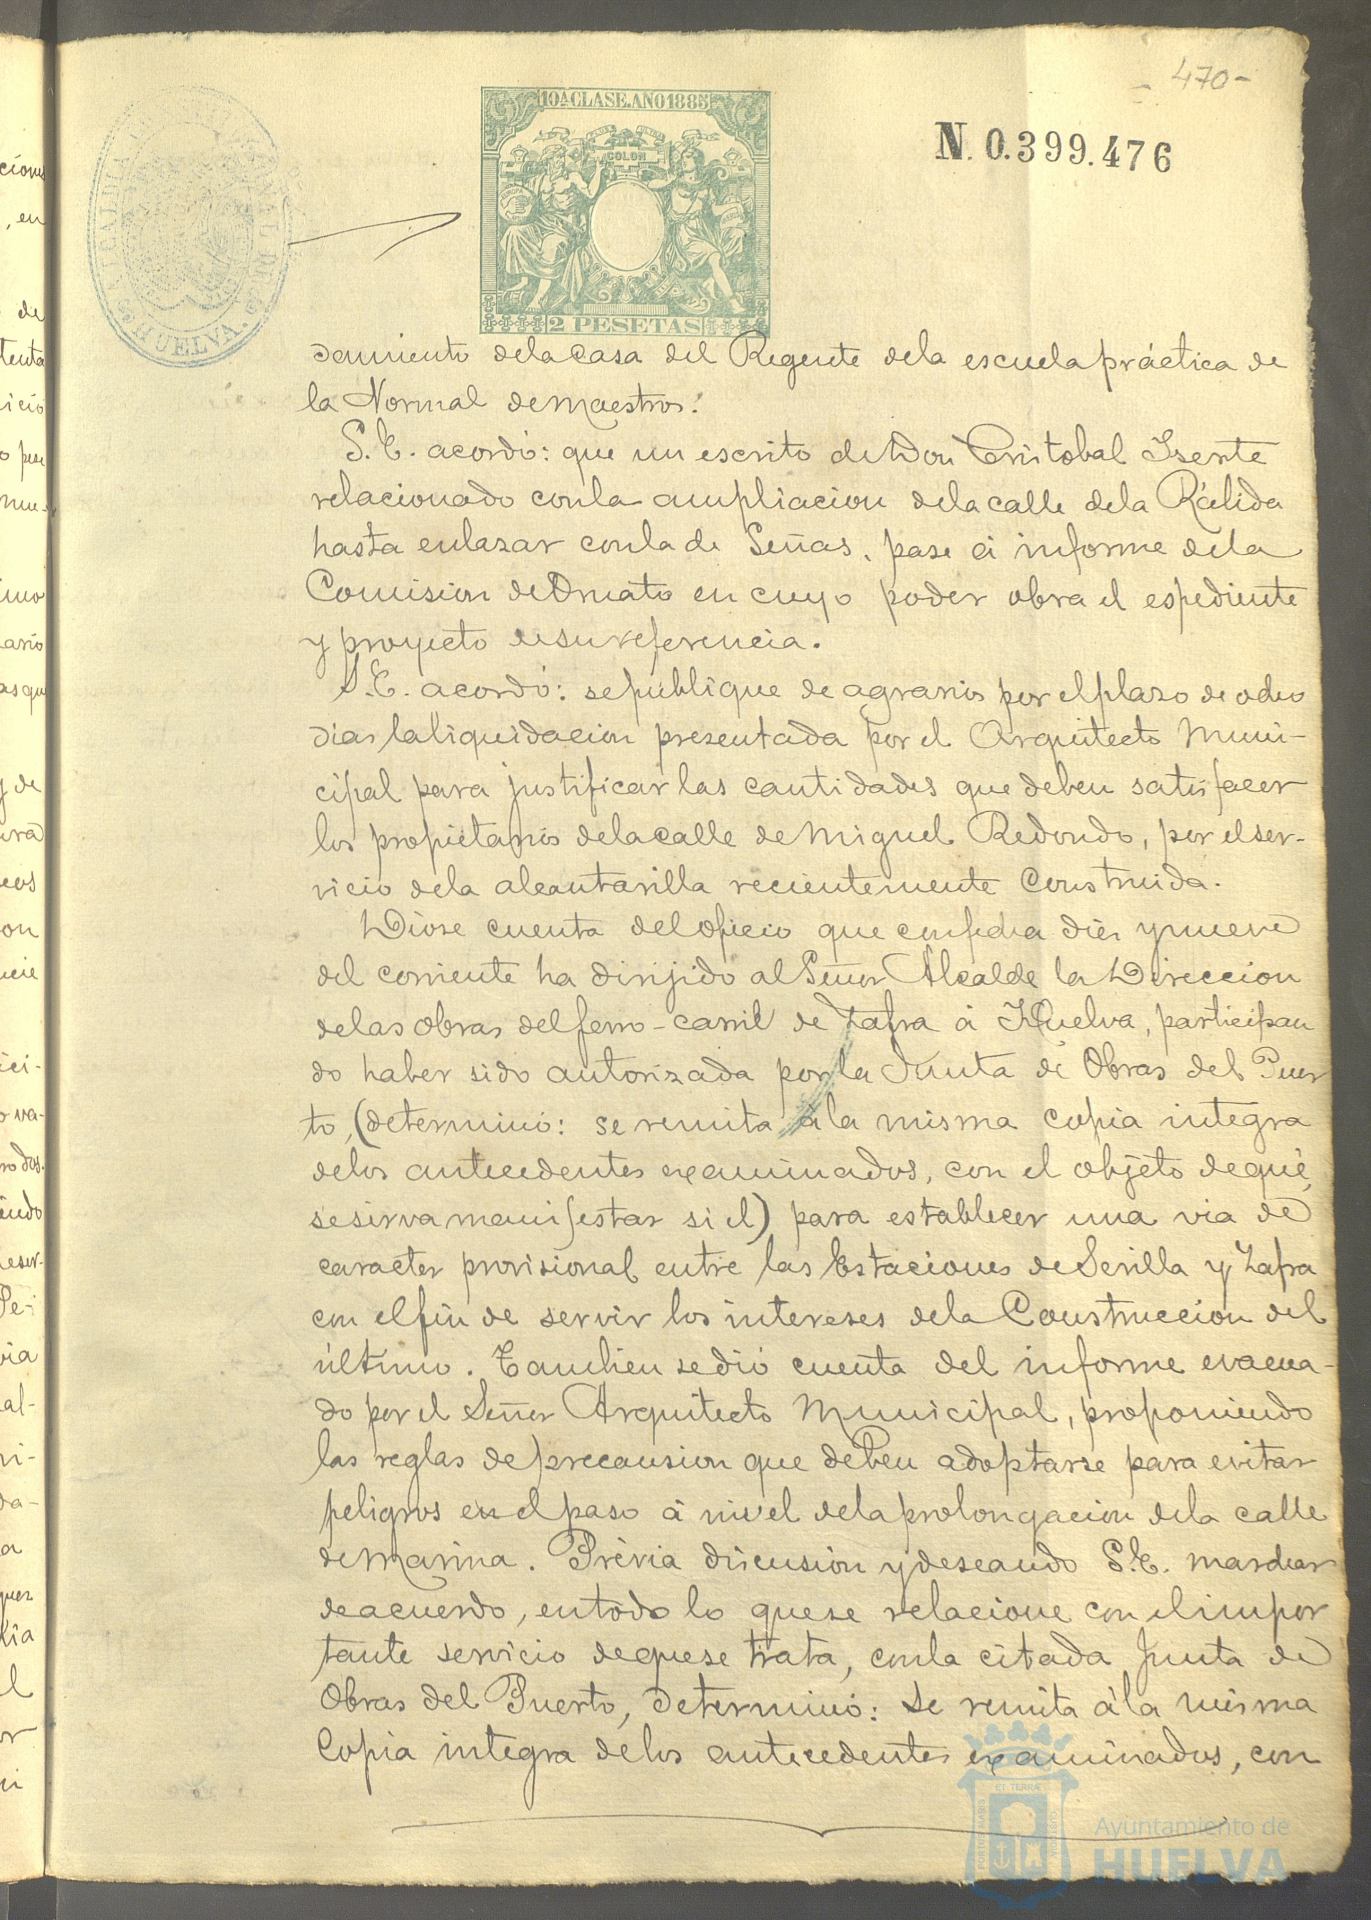 470-
10ª CLASE. AÑO 1885
N. 0.399.476
PLUS ULTRA
COLON
EUROPA
2 PESETAS
ALCALDIA CONSTITUCIONAL DE HUELVA.
damiento dela Casa del Regente dela escuela práctica de
la Normal de Maestros.
S.E. acordó: que un escrito de Don Cristobal Isente
relacionado con la ampliacion dela calle dela Rábida
hasta enlazar con la de Señas, pase á informe dela
Comision de Ornato en cuyo poder obra el espediente
y proyecto de su referencia.
S.E. acordó: se publique de agravios por el plazo de ocho
dias la liquidacion presentada por el Arquitecto Muni-
cipal para justificar las cantidades que deben satisfacer
los propietarios dela calle de Miguel Redondo, por el ser-
vicio dela alcantarilla recientemente Construida.
Diose cuenta del oficio que con fecha diez y nueve
del corriente ha dirijido al Señor Alcalde la Direccion
delas obras del ferro-carril de Zafra á Huelva, participan
do haber sido autorizada por la Junta de Obras del Puer
to, (determinó: se remita á la misma copia integra
delos antecedentes examinados, con el objeto de que
se sirva manifestar si el) para establecer una via de
caracter provisional entre las Estaciones de Sevilla y Zafra
con el fin de servir los intereses dela Construccion del
último. Tambien se dió cuenta del informe evacua-
do por el Señor Arquitecto Municipal, proponiendo
las reglas de precausion que deben adoptarse para evitar
peligros en el paso á nivel dela prolongacion dela calle
de Marina. Prévia discusion y deseando S.E. marchar
de acuerdo, en todo lo que se relacione con el impor
tante servicio de que se trata, con la citada Junta de
Obras del Puerto, determinó: Se remita á la misma
Copia integra delos antecedentes examinados, con
Ayuntamiento de
HUELVA